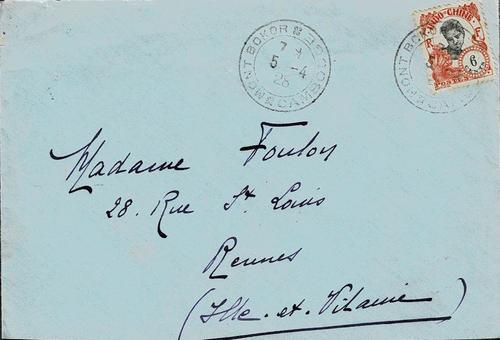 MONT BOKOR
7
5 -4
26
CAMBODGE
INDO-CHINE
R F
6
POSTES
MONT BOKOR
5
Madame Foulon
28. Rue St Louis
Rennes
(Ille-et-Vilaine)